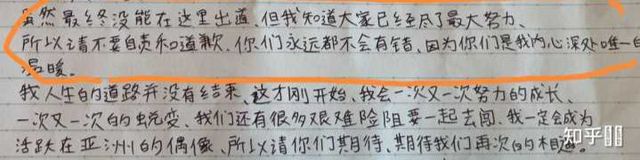 虽然最终没能在这里出道、但我知道大家已经尽了最大努力、
所以请不要自责和道歉、你们永远都不会有错、因为你们是我内心深处唯一的
温暖。
我人生的道路并没有结束、这才刚开始、我会一次又一次努力的成长、
一次又一次的蜕变、我们还有很多艰难险阻要一起去闯、我一定会成为
活跃在亚洲的偶像、所以请你们期待、期待我们再次的相遇。
知乎